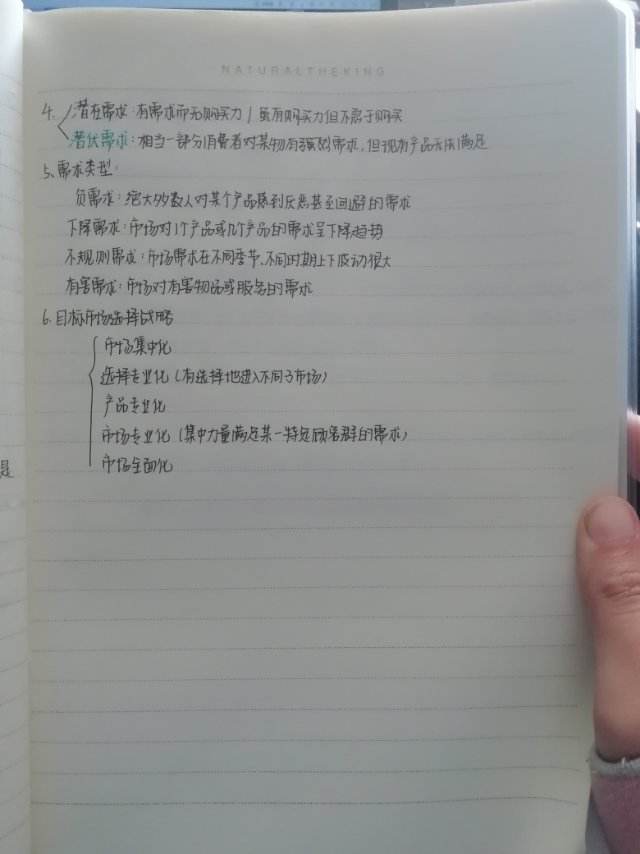 NATURALTHEKING
4. 潜在需求：有需求而无购买力 / 虽有购买力但不急于购买
潜伏需求：相当一部分消费者对某物有强烈需求，但现有产品无法满足
5、需求类型：
负需求：绝大多数人对某个产品感到厌恶甚至回避的需求
下降需求：市场对1个产品或几个产品的需求呈下降趋势
不规则需求：市场需求在不同季节、不同时期上下波动很大
有害需求：市场对有害物品或服务的需求
6. 目标市场选择战略
市场集中化
选择专业化（有选择地进入不同子市场）
产品专业化
市场专业化（集中力量满足某一特定顾客群的需求）
市场全面化
是